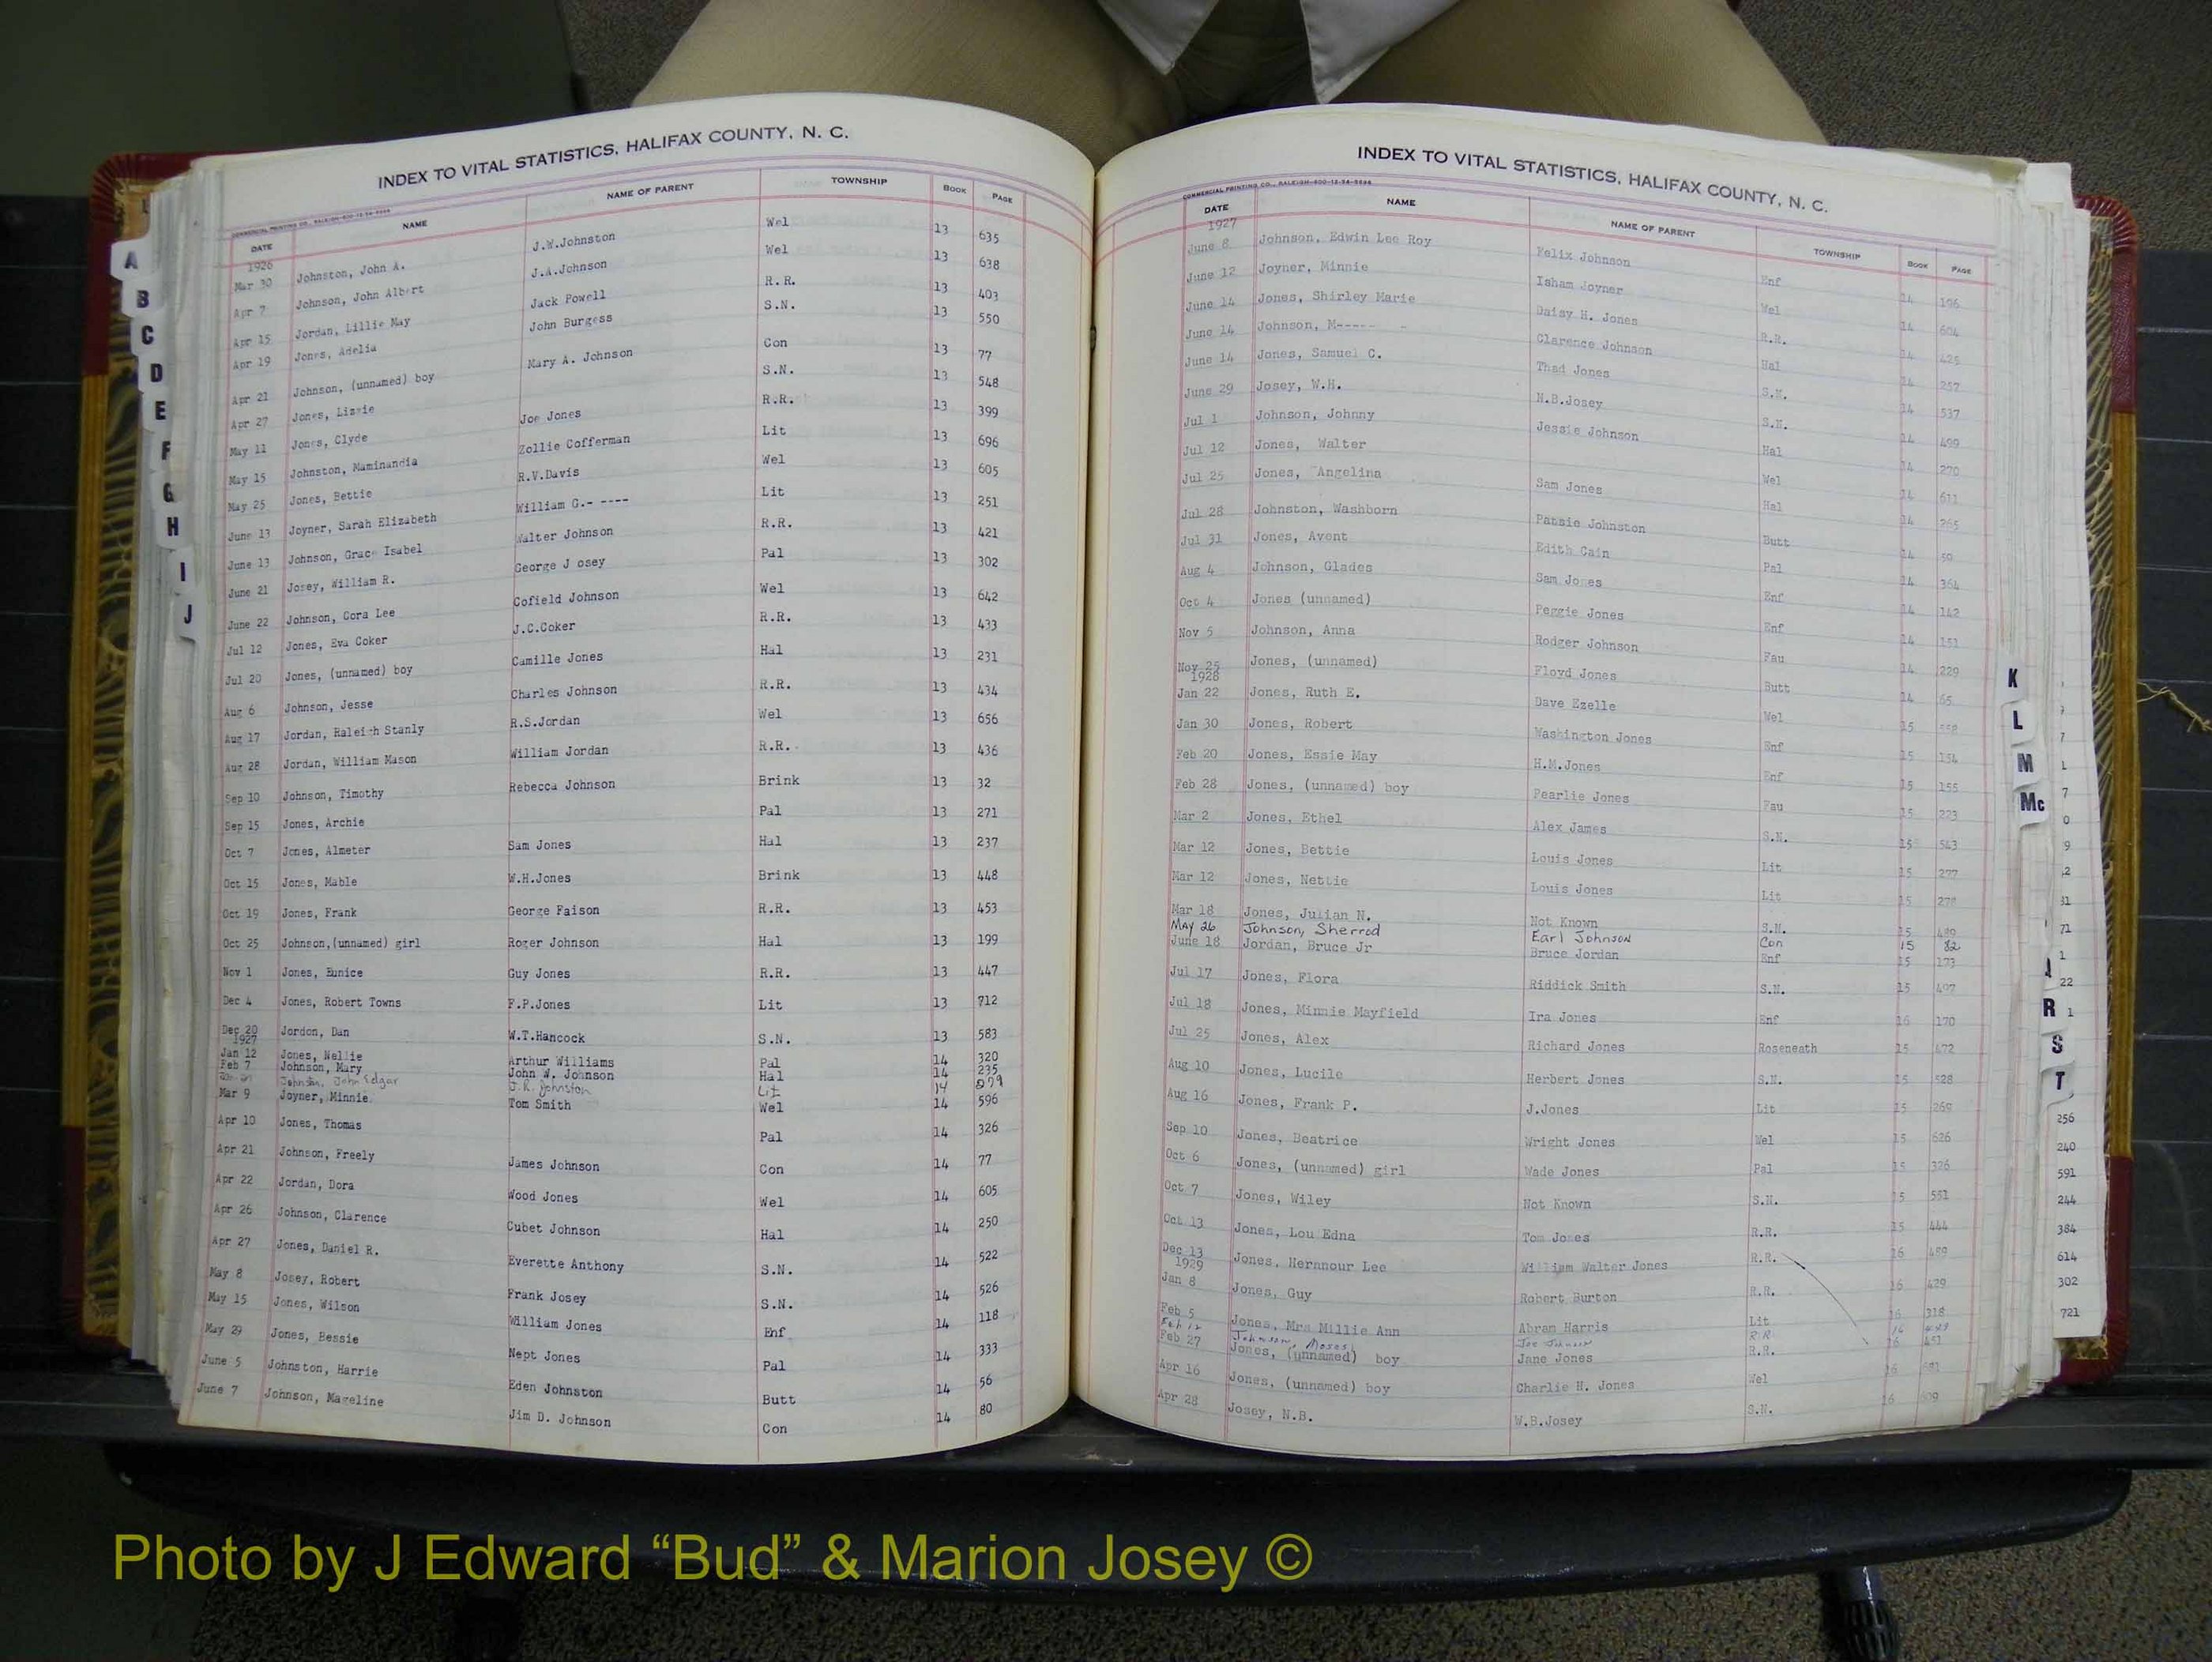 INDEX TO VITAL STATISTICS, HALIFAX COUNTY, N. C.
COMMERCIAL PRINTING CO., RALEIGH
DATE NAME NAME OF PARENT TOWNSHIP BOOK PAGE
1926
Mar 30 Johnston, John A. J.W.Johnston Wel 13 635
Apr 7 Johnson, John Albert J.A.Johnson Wel 13 638
Apr 15 Jordan, Lillie May Jack Powell R.R. 13 403
Apr 19 Jones, Adelia John Burgess S.N. 13 550
Apr 21 Johnson, (unnamed) boy Mary A. Johnson Con 13 77
Apr 27 Jones, Lizzie S.N. 13 548
May 11 Jones, Clyde Joe Jones R.R. 13 399
May 15 Johnston, Maminandia Zollie Cofferman Lit 13 696
May 25 Jones, Bettie R.V.Davis Wel 13 605
June 13 Joyner, Sarah Elizabeth William G.- ---- Lit 13 251
June 13 Johnson, Grace Isabel Walter Johnson R.R. 13 421
June 21 Josey, William R. George J osey Pal 13 302
June 22 Johnson, Cora Lee Cofield Johnson Wel 13 642
Jul 12 Jones, Eva Coker J.C.Coker R.R. 13 433
Jul 20 Jones, (unnamed) boy Camille Jones Hal 13 231
Aug 6 Johnson, Jesse Charles Johnson R.R. 13 434
Aug 17 Jordan, Raleigh Stanly R.S.Jordan Wel 13 656
Aug 28 Jordan, William Mason William Jordan R.R. 13 436
Sep 10 Johnson, Timothy Rebecca Johnson Brink 13 32
Sep 15 Jones, Archie Pal 13 271
Oct 7 Jones, Almeter Sam Jones Hal 13 237
Oct 15 Jones, Mable W.H.Jones Brink 13 448
Oct 19 Jones, Frank George Faison R.R. 13 453
Oct 25 Johnson,(unnamed) girl Roger Johnson Hal 13 199
Nov 1 Jones, Eunice Guy Jones R.R. 13 447
Dec 4 Jones, Robert Towns F.P.Jones Lit 13 712
Dec 20 Jordon, Dan W.T.Hancock S.N. 13 583
1927
Jan 12 Jones, Nellie Arthur Williams Pal 14 320
Feb 7 Johnson, Mary John W. Johnson Hal 14 235
Johnston, John Edgar J.R. Johnston Lit 14
Mar 9 Joyner, Minnie Tom Smith Wel 14 596
Apr 10 Jones, Thomas Pal 14 326
Apr 21 Johnson, Freely James Johnson Con 14 77
Apr 22 Jordan, Dora Wood Jones Wel 14 605
Apr 26 Johnson, Clarence Cubet Johnson Hal 14 250
Apr 27 Jones, Daniel R. Everette Anthony S.N. 14 522
May 8 Josey, Robert Frank Josey S.N. 14 526
May 15 Jones, Wilson William Jones Enf 14 118
May 29 Jones, Bessie Nept Jones Pal 14 333
June 5 Johnston, Harrie Eden Johnston Butt 14 56
June 7 Johnson, Mageline Jim D. Johnson Con 14 80
INDEX TO VITAL STATISTICS, HALIFAX COUNTY, N. C.
COMMERCIAL PRINTING CO., RALEIGH
DATE NAME NAME OF PARENT TOWNSHIP BOOK PAGE
1927
June 8 Johnson, Edwin Lee Roy Felix Johnson Enf 14 106
June 12 Joyner, Minnie Isham Joyner Wel 14 604
June 14 Jones, Shirley Marie Daisy H. Jones R.R. 14 425
June 14 Johnson, M----- - Clarence Johnson Hal 14 257
June 14 Jones, Samuel C. Thad Jones S.N. 14 537
June 29 Josey, W.H. H.B.Josey S.N. 14 499
Jul 1 Johnson, Johnny Jessie Johnson Hal 14 270
Jul 12 Jones, Walter Wel 14 611
Jul 25 Jones, Angelina Sam Jones Hal 14 265
Jul 28 Johnston, Washborn Patsie Johnston Butt 14 50
Jul 31 Jones, Avent Edith Cain Pal 14 364
Aug 4 Johnson, Glades Sam Jones Enf 14 142
Oct 4 Jones (unnamed) Peggie Jones Enf 14 151
Nov 5 Johnson, Anna Rodger Johnson Fau 14 229
Nov 25 Jones, (unnamed) Floyd Jones Butt 14 65
1928
Jan 22 Jones, Ruth E. Dave Ezelle Wel 15 558
Jan 30 Jones, Robert Washington Jones Enf 15 154
Feb 20 Jones, Essie May H.M.Jones Enf 15 155
Feb 28 Jones, (unnamed) boy Pearlie Jones Fau 15 223
Mar 2 Jones, Ethel Alex James S.N. 15 543
Mar 12 Jones, Bettie Louis Jones Lit 15 277
Mar 12 Jones, Nettie Louis Jones Lit 15 278
Mar 18 Jones, Julian N. Not Known S.N. 15 489
May 26 Johnson, Sherrod Earl Johnson Con 15 82
June 18 Jordan, Bruce Jr Bruce Jordan Enf 15 173
Jul 17 Jones, Flora Riddick Smith S.N. 15 497
Jul 18 Jones, Minnie Mayfield Ira Jones Enf 16 170
Jul 25 Jones, Alex Richard Jones Roseneath 15 472
Aug 10 Jones, Lucile Herbert Jones S.N. 15 528
Aug 16 Jones, Frank P. J.Jones Lit 15 269
Sep 10 Jones, Beatrice Wright Jones Wel 15 626
Oct 6 Jones, (unnamed) girl Wade Jones Pal 15 326
Oct 7 Jones, Wiley Not Known S.N. 15 551
Oct 13 Jones, Lou Edna Tom Jones R.R. 15 444
Dec 13 Jones, Hernour Lee William Walter Jones R.R. 16 489
1929
Jan 8 Jones, Guy Robert Burton R.R. 16 429
Feb 5 Jones, Mrs Millie Ann Abram Harris Lit 16 318
Feb 12 Johnson, Moses Joe Johnson R.R. 16
Feb 27 Jones, (unnamed) boy Jane Jones R.R. 16 451
Apr 16 Jones, (unnamed) boy Charlie H. Jones Wel 16 681
Apr 28 Josey, N.B. W.B.Josey S.N. 16 609
A
B
C
D
E
F
G
H
I
J
K
L
M
Mc
R
S
T
256
240
591
244
384
614
302
721
Photo by J Edward “Bud” & Marion Josey ©